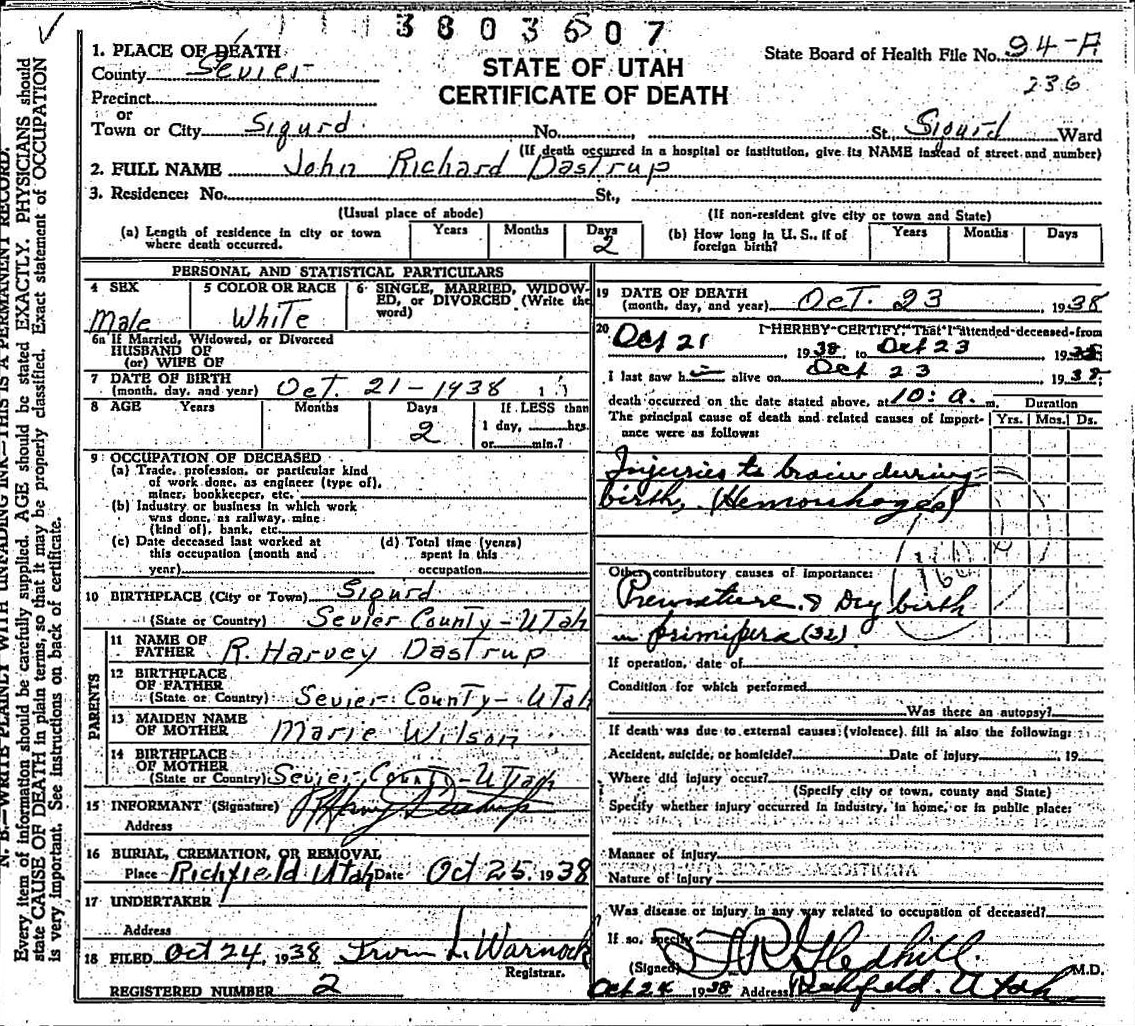 3803607
1. PLACE OF DEATH
County Sevier
STATE OF UTAH
CERTIFICATE OF DEATH
State Board of Health File No. 94-A
236
Precinct
or
Town or City Sigurd No. , St, Sigurd Ward
(If death occurred in a hospital or institution, give its NAME instead of street and number)
2. FULL NAME John Richard Dastrup
3. Residence: No. St.,
(Usual place of abode) (If non-resident give city or town and State)
(a) Length of residence in city or town where death occurred. Years Months Days 2
(b) How long in U. S., if of foreign birth? Years Months Days
PERSONAL AND STATISTICAL PARTICULARS
4 SEX Male
5 COLOR OR RACE White
6 SINGLE, MARRIED, WIDOWED, or DIVORCED (Write the word)
6a If Married, Widowed, or Divorced
HUSBAND OF
(or) WIFE OF
7 DATE OF BIRTH
(month, day, and year) Oct. 21-1938
8 AGE Years Months Days 2
If LESS than
1 day, hrs.
or min.?
9 OCCUPATION OF DECEASED
(a) Trade, profession, or particular kind
of work done, as engineer (type of),
miner, bookkeeper, etc.
(b) Industry or business in which work
was done, as railway, mine
(kind of), bank, etc.
(c) Date deceased last worked at
this occupation (month and
year)
(d) Total time (years)
spent in this
occupation
10 BIRTHPLACE (City or Town) Sigurd
(State or Country) Sevier County-Utah
PARENTS
11 NAME OF
FATHER R. Harvey Dastrup
12 BIRTHPLACE
OF FATHER
(State or Country) Sevier County-Utah
13 MAIDEN NAME
OF MOTHER Marie Wilson
14 BIRTHPLACE
OF MOTHER
(State or Country) Sevier County-Utah
15 INFORMANT (Signature) R Harvey Dastrup
Address
16 BURIAL, CREMATION, OR REMOVAL
Place Richfield Utah Date Oct 25, 1938
17 UNDERTAKER
Address
18 FILED Oct 24, 1938 Irvin L. Warnock
Registrar.
REGISTERED NUMBER 2
19 DATE OF DEATH
(month, day, and year) Oct. 23 1938
20 I HEREBY CERTIFY, That I attended deceased from
Oct 21 1938, to Oct 23 1938
I last saw him alive on Oct 23 1938
death occurred on the date stated above, at 10: a. m. Duration
The principal cause of death and related causes of importance were as follows: Yrs. Mos. Ds.
Injuries to brain during
birth, (Hemorrhages)
160
Other contributory causes of importance:
Premature & Dry birth
in primipera (32)
If operation, date of
Condition for which performed
Was there an autopsy?
If death was due to external causes (violence) fill in also the following:
Accident, suicide, or homicide? Date of injury , 19
Where did injury occur?
(Specify city or town, county and State)
Specify whether injury occurred in industry, in home, or in public place:
Manner of injury
Nature of injury
Was disease or injury in any way related to occupation of deceased?
If so, specify
(Signed) T R Gledhill M.D.
Oct 24 1938 Address Richfield, Utah
N. B.—WRITE PLAINLY WITH UNFADING INK—THIS IS A PERMANENT RECORD.
Every item of information should be carefully supplied. AGE should be stated EXACTLY. PHYSICIANS should
state CAUSE OF DEATH in plain terms, so that it may be properly classified. Exact statement of OCCUPATION
is very important. See instructions on back of certificate.